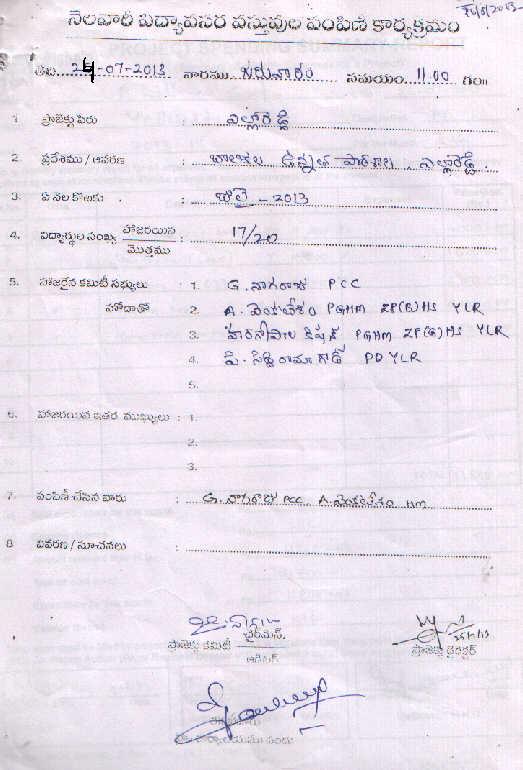 నెలవారీ విద్యావసర వస్తువుల పంపిణీ కార్యక్రమం
తేది 24-07-2013 వారము బుధవారం సమయం 11.00 గం॥
1 ప్రాజెక్టు పేరు : ఎల్లారెడ్డి
2 ప్రదేశము / ఆవరణ : బాలికల ఉన్నత పాఠశాల, ఎల్లారెడ్డి.
3. ఏ నెల కొరకు : జూలై - 2013
4. విద్యార్థుల సంఖ్య హాజరయిన / మొత్తము : 17/20
5. హాజరైన కమిటీ సభ్యులు : 1. G. నాగరాజు PCC
హోదాతో 2. A. వెంకటేశం PGHM ZP(B)HS YLR
3. హరగోపాల కిషన్ PGHM ZP(G)HS YLR
4. పి. సిద్ధిరామా గౌడ్ PD YLR
5.
6. హాజరయిన ఇతర ముఖ్యులు : 1.
2.
3.
7. పంపిణీ చేసిన వారు : G. నాగరాజు PCC A. వెంకటేశం HM
8 వివరణ / సూచనలు :
చైర్మెన్.
ప్రాజెక్టు కమిటీ
ప్రాజెక్టు డైరెక్టర్